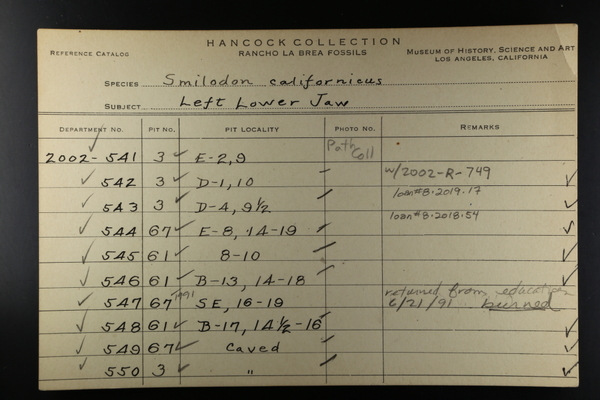 HANCOCK COLLECTION
REFERENCE CATALOG RANCHO LA BREA FOSSILS MUSEUM OF HISTORY, SCIENCE AND ART
LOS ANGELES, CALIFORNIA
SPECIES Smilodon californicus
SUBJECT Left Lower Jaw
DEPARTMENT NO. PIT NO. PIT LOCALITY PHOTO NO. REMARKS
2002-541 3 E-2,9 Path Coll
542 3 D-1,10 w/2002-R-749
543 3 D-4,9½ loan#8-2019-17
544 67 E-8, 14-19 loan#8-2018-54
545 61 8-10
546 61 B-13, 14-18
547 67 1991 SE, 16-19 returned from education
6/21/91 burned
548 61 B-17, 14½-16
549 67 Caved
550 3 "